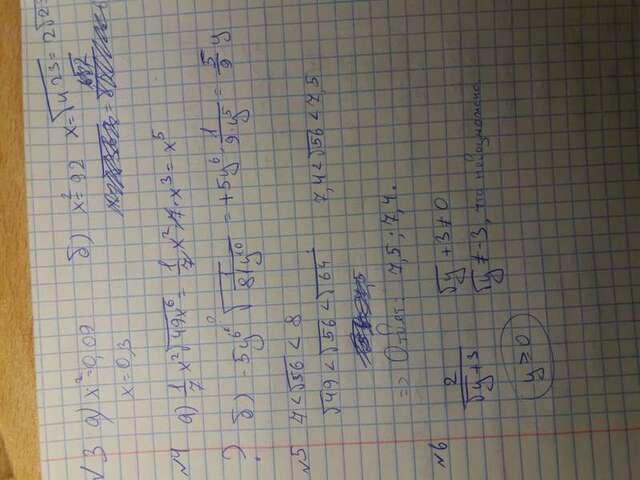 №3 а) x² = 0,09 б) x² = 92 x = √4·23 = 2√23
x = 0,3
№4 а) 1/7 x² √49x⁶ = 1/7 x² · 7 · x³ = x⁵
? б) -5y⁶ √1/81y¹⁰ = +5y⁶ · 1/9·y⁵ = 5/9 y
№5 7 < √56 < 8
√49 < √56 < √64 7,4 < √56 < 7,5
=> Ответ: 7,5 ; 7,4.
№6
2/√y+3 √y + 3 ≠ 0
√y ≠ -3, что невозможно
y ≥ 0